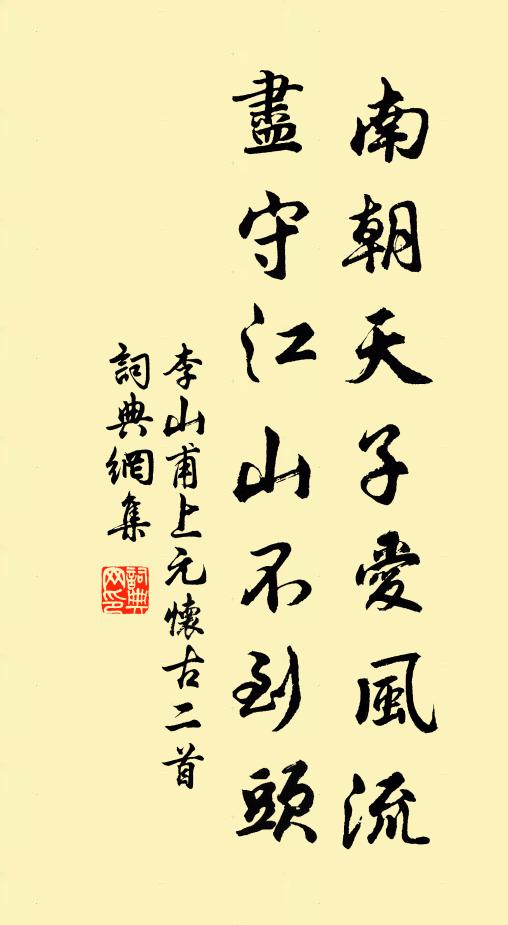 南朝天子愛風流
盡守江山不到頭
李山甫上元懷古二首
詞典網集
詞典
网印